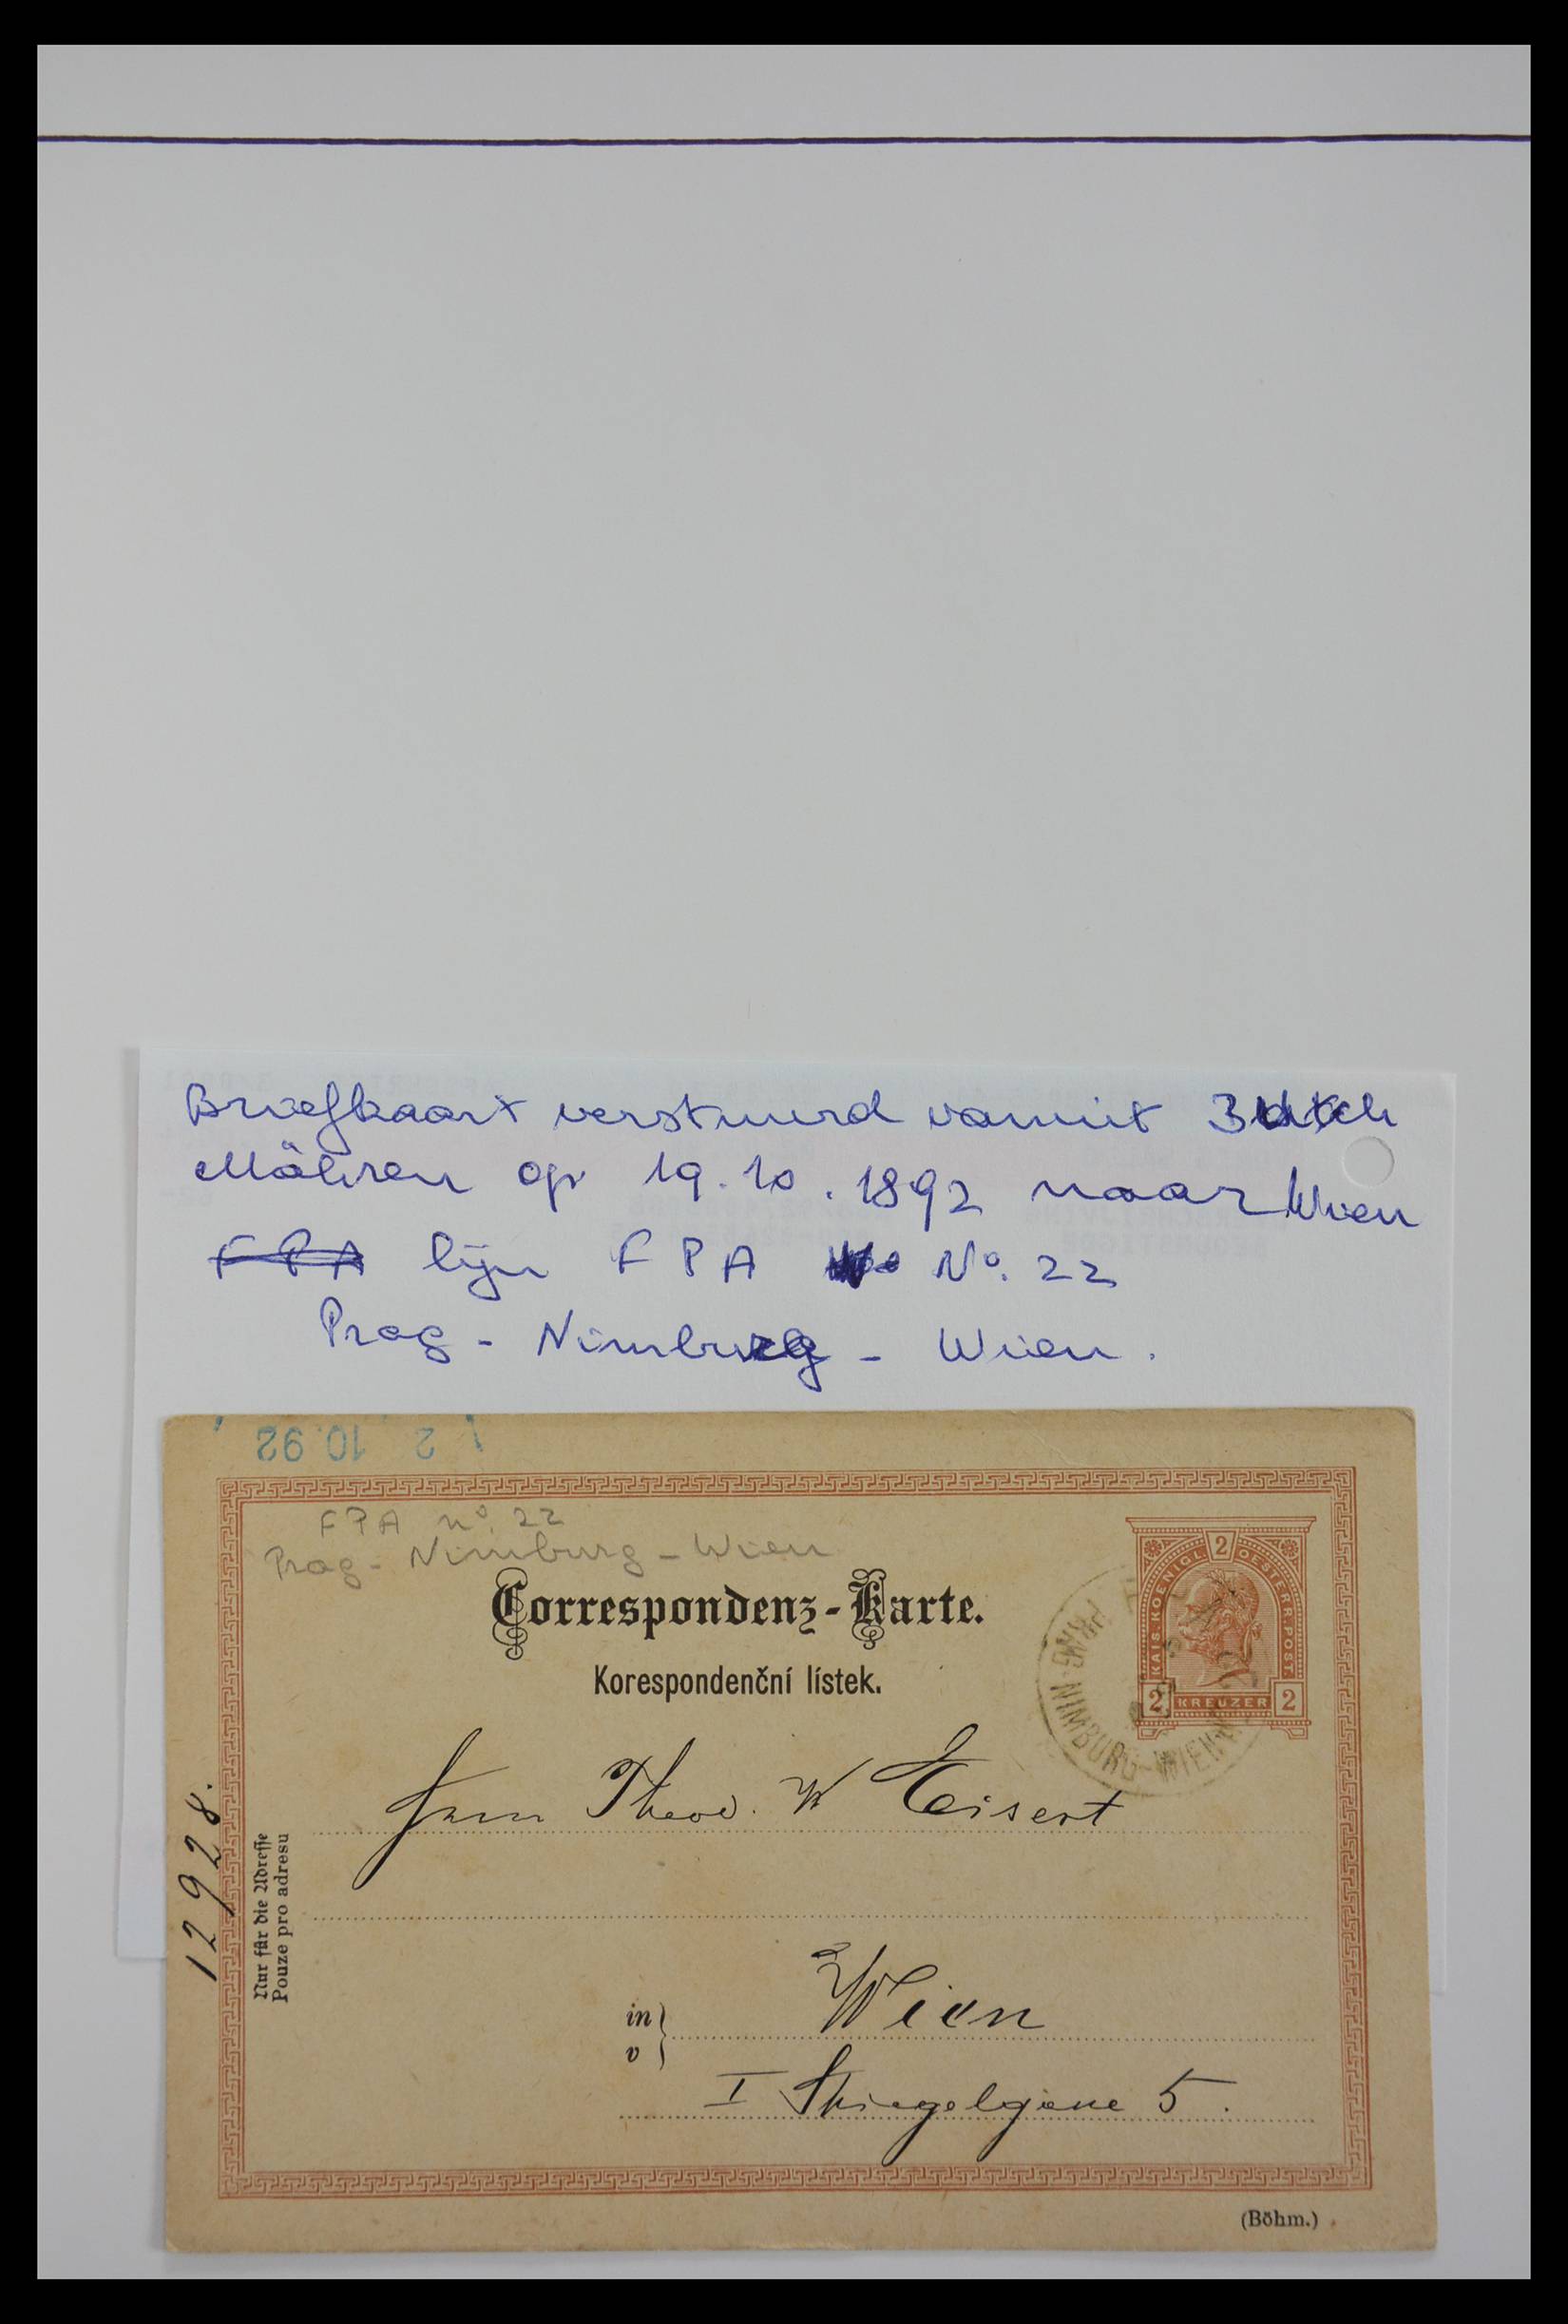 Briefkaart verstuurd vanuit
Mähren op 19.10.1892 naar Wien
FPA lijn FPA No. 22
Prag - Nimburg - Wien.
2 10.92
FPA no. 22
Prag - Nimburg - Wien
2
KAIS. KOENIGL. OESTERR. POST
2 KREUZER 2
PRAG-NIMBURG-WIEN
Correspondenz-Karte.
Korespondenční lístek.
Herrn Theod. W Eisert
12928.
Nur für die Adresse
Pouze pro adresu
in
v
Wien
I Spiegelgasse 5.
(Böhm.)